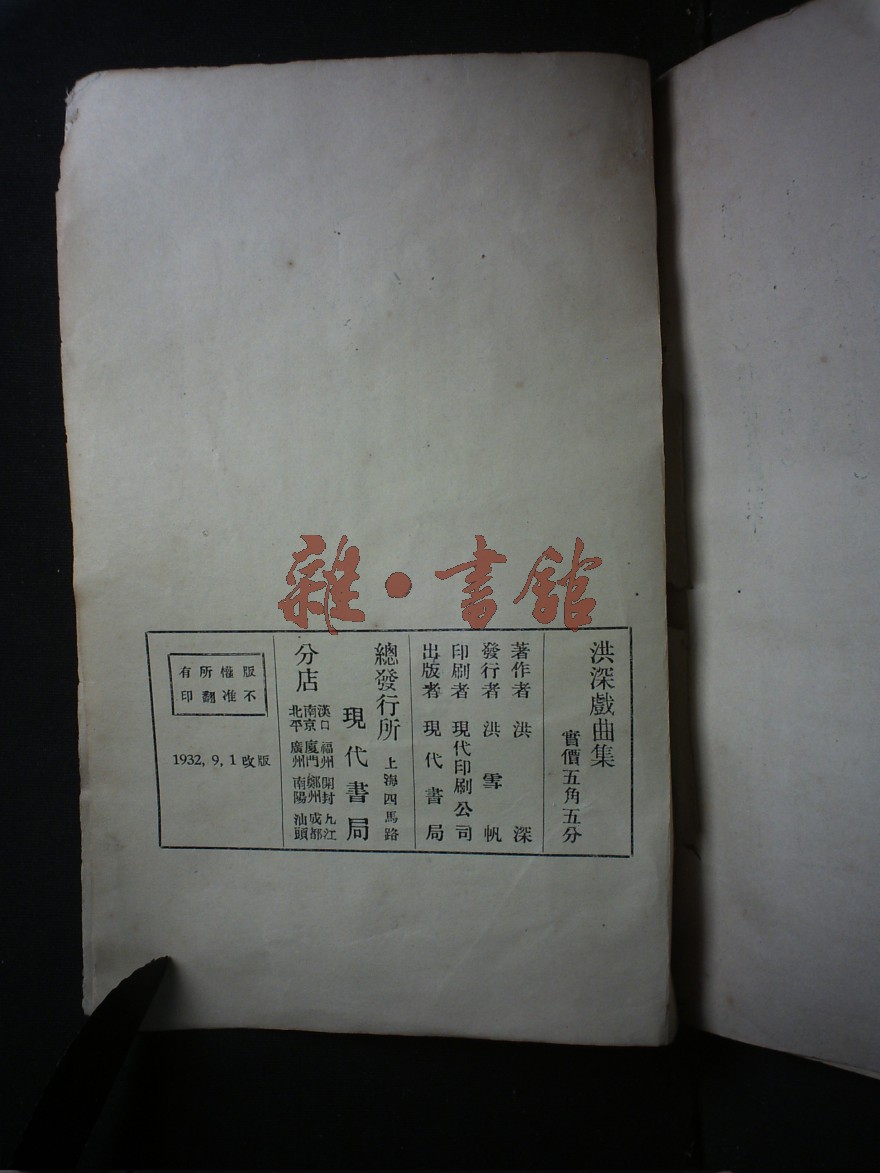 雜·書館
洪深戲曲集
實價五角五分
著作者 洪 深
發行者 洪雪帆
印刷者 現代印刷公司
出版者 現代書局
總發行所 上海四馬路
現代書局
分店
漢口 福州 開封 九江
南京 廈門 鄭州 成都
北平 廣州 南陽 汕頭
版權所有
不准翻印
1932, 9, 1 改版